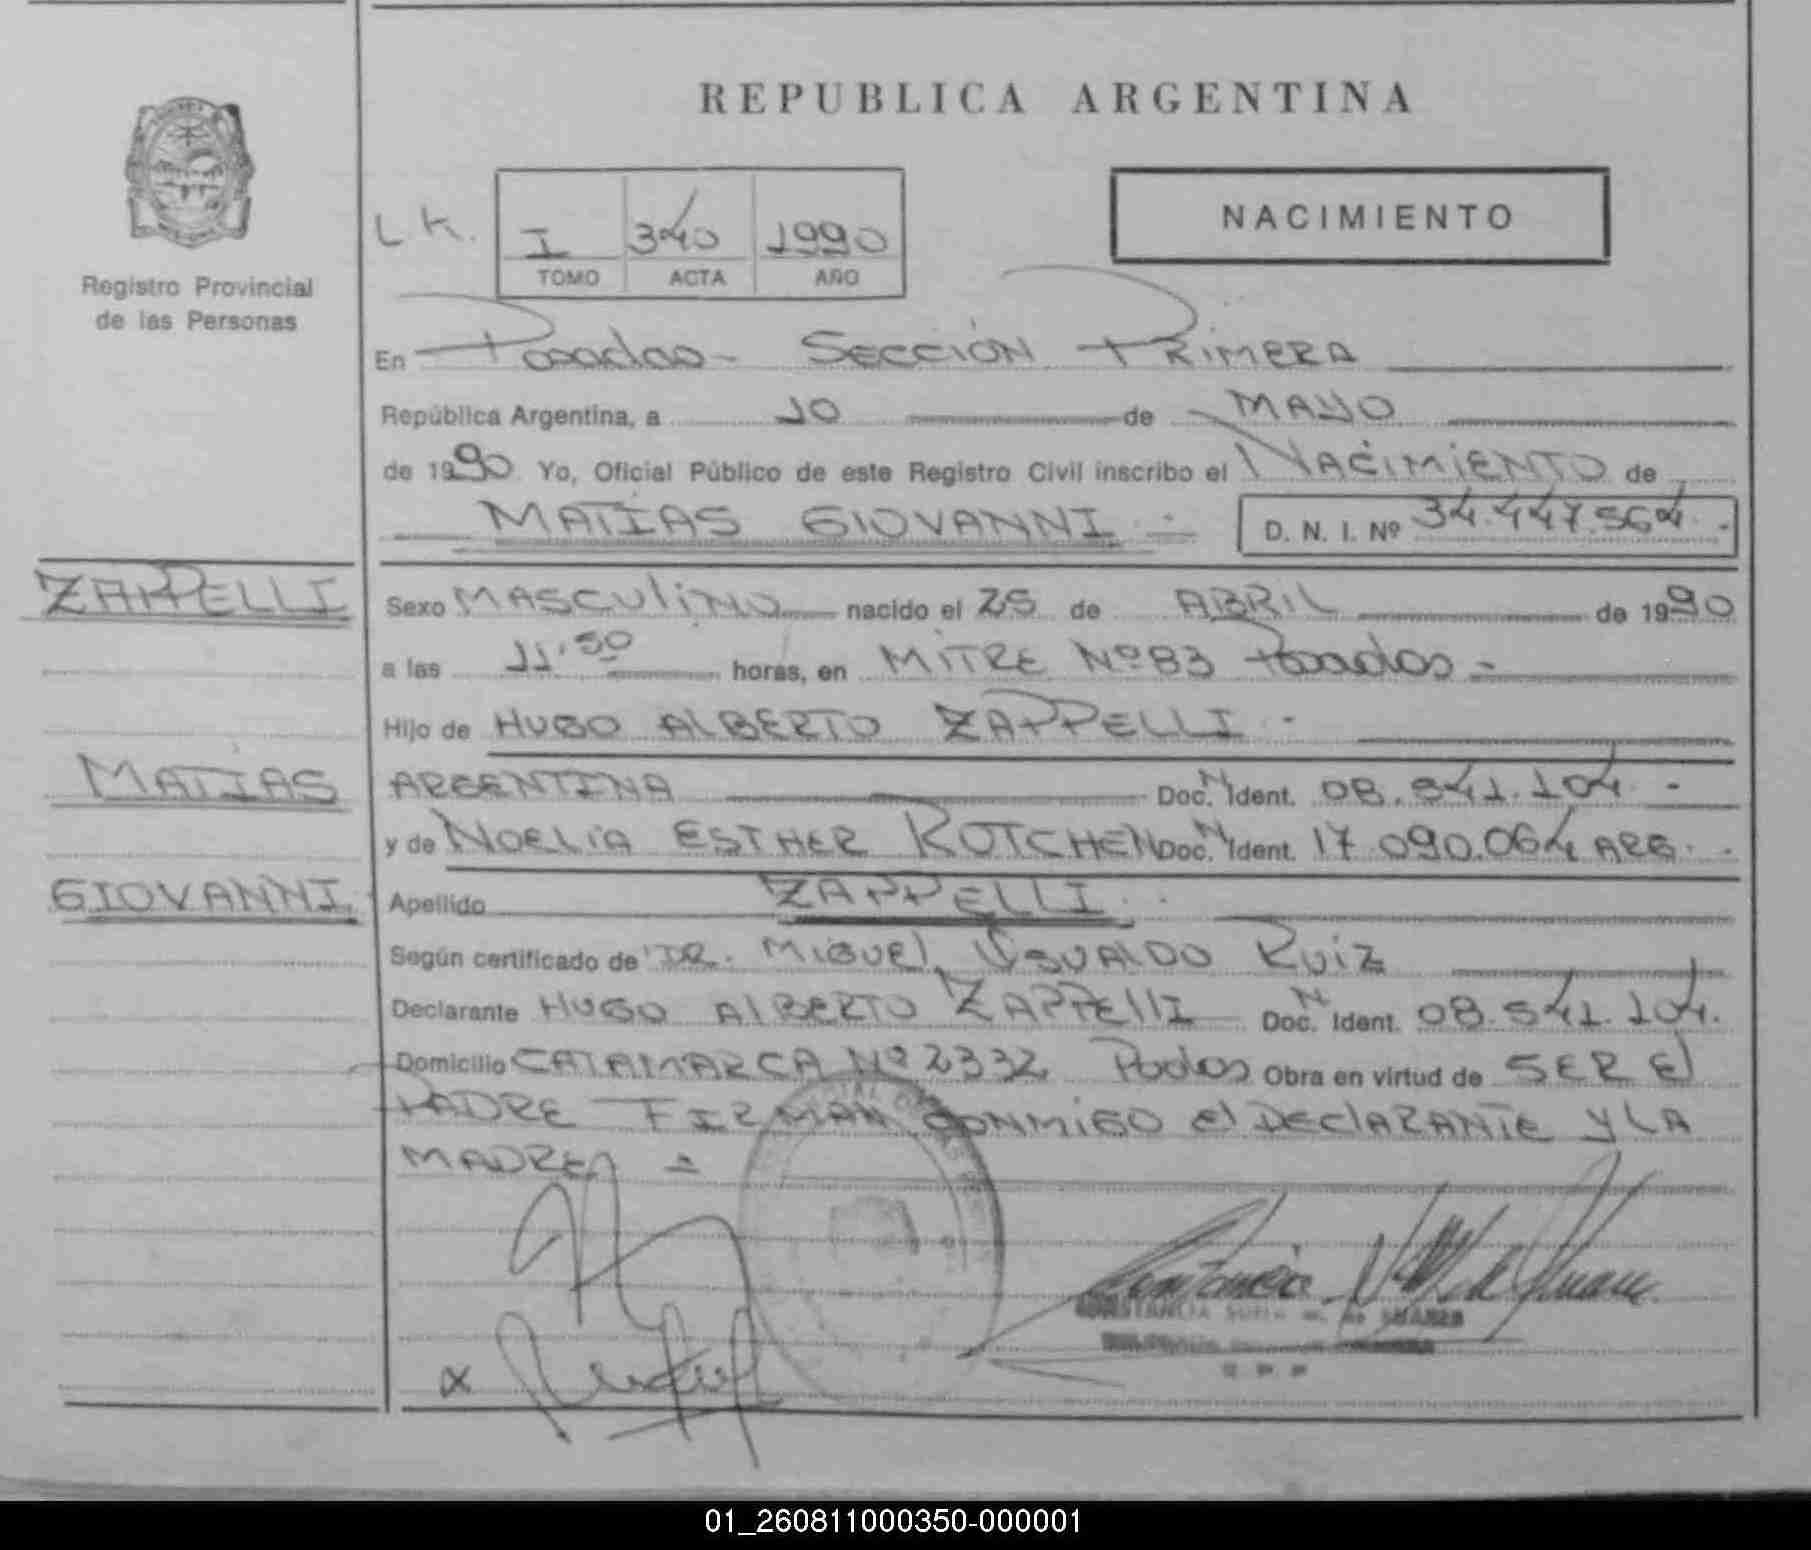 REPUBLICA ARGENTINA
Registro Provincial
de las Personas
L.K.
I 340 1990
TOMO ACTA AÑO
NACIMIENTO
En Posadas - SECCIÓN PRIMERA
República Argentina, a 10 de MAYO
de 1990 Yo, Oficial Público de este Registro Civil inscribo el NACIMIENTO de
MATIAS GIOVANNI.- D. N. I. Nº 34.447.564.-
ZAPPELLI
Sexo MASCULINO nacido el 25 de ABRIL de 1990
a las 11'50 horas, en MITRE Nº 83 Posadas.-
Hijo de HUGO ALBERTO ZAPPELLI.-
MATIAS
ARGENTINA Doc. N Ident. 08.541.104.-
y de NOELIA ESTHER ROTCHEN Doc. N Ident. 17.090.064 ARG.-
GIOVANNI.
Apellido ZAPPELLI.-
Según certificado de DR. MIGUEL OSVALDO RUIZ
Declarante HUGO ALBERTO ZAPPELLI Doc. N Ident. 08.541.104.
Domicilio CATAMARCA Nº 2332 Obra en virtud de SER El
PADRE FIRMAN CONMIGO El DECLARANTE Y LA
MADRE.-
CONSTANCIA DE SUAREZ
x
01_260811000350-000001